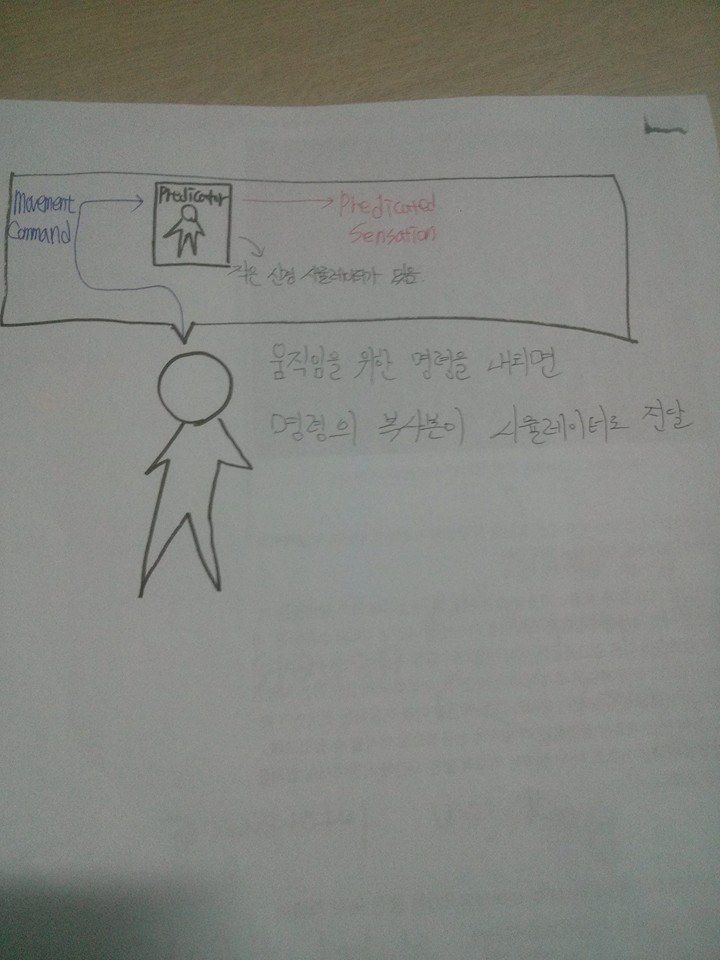 Movement
Command
Predicator
Predicated
Sensation
작은 신경 시뮬레이터가 있음.
움직임을 위한 명령을 내리면
명령의 복사본이 시뮬레이터로 전달